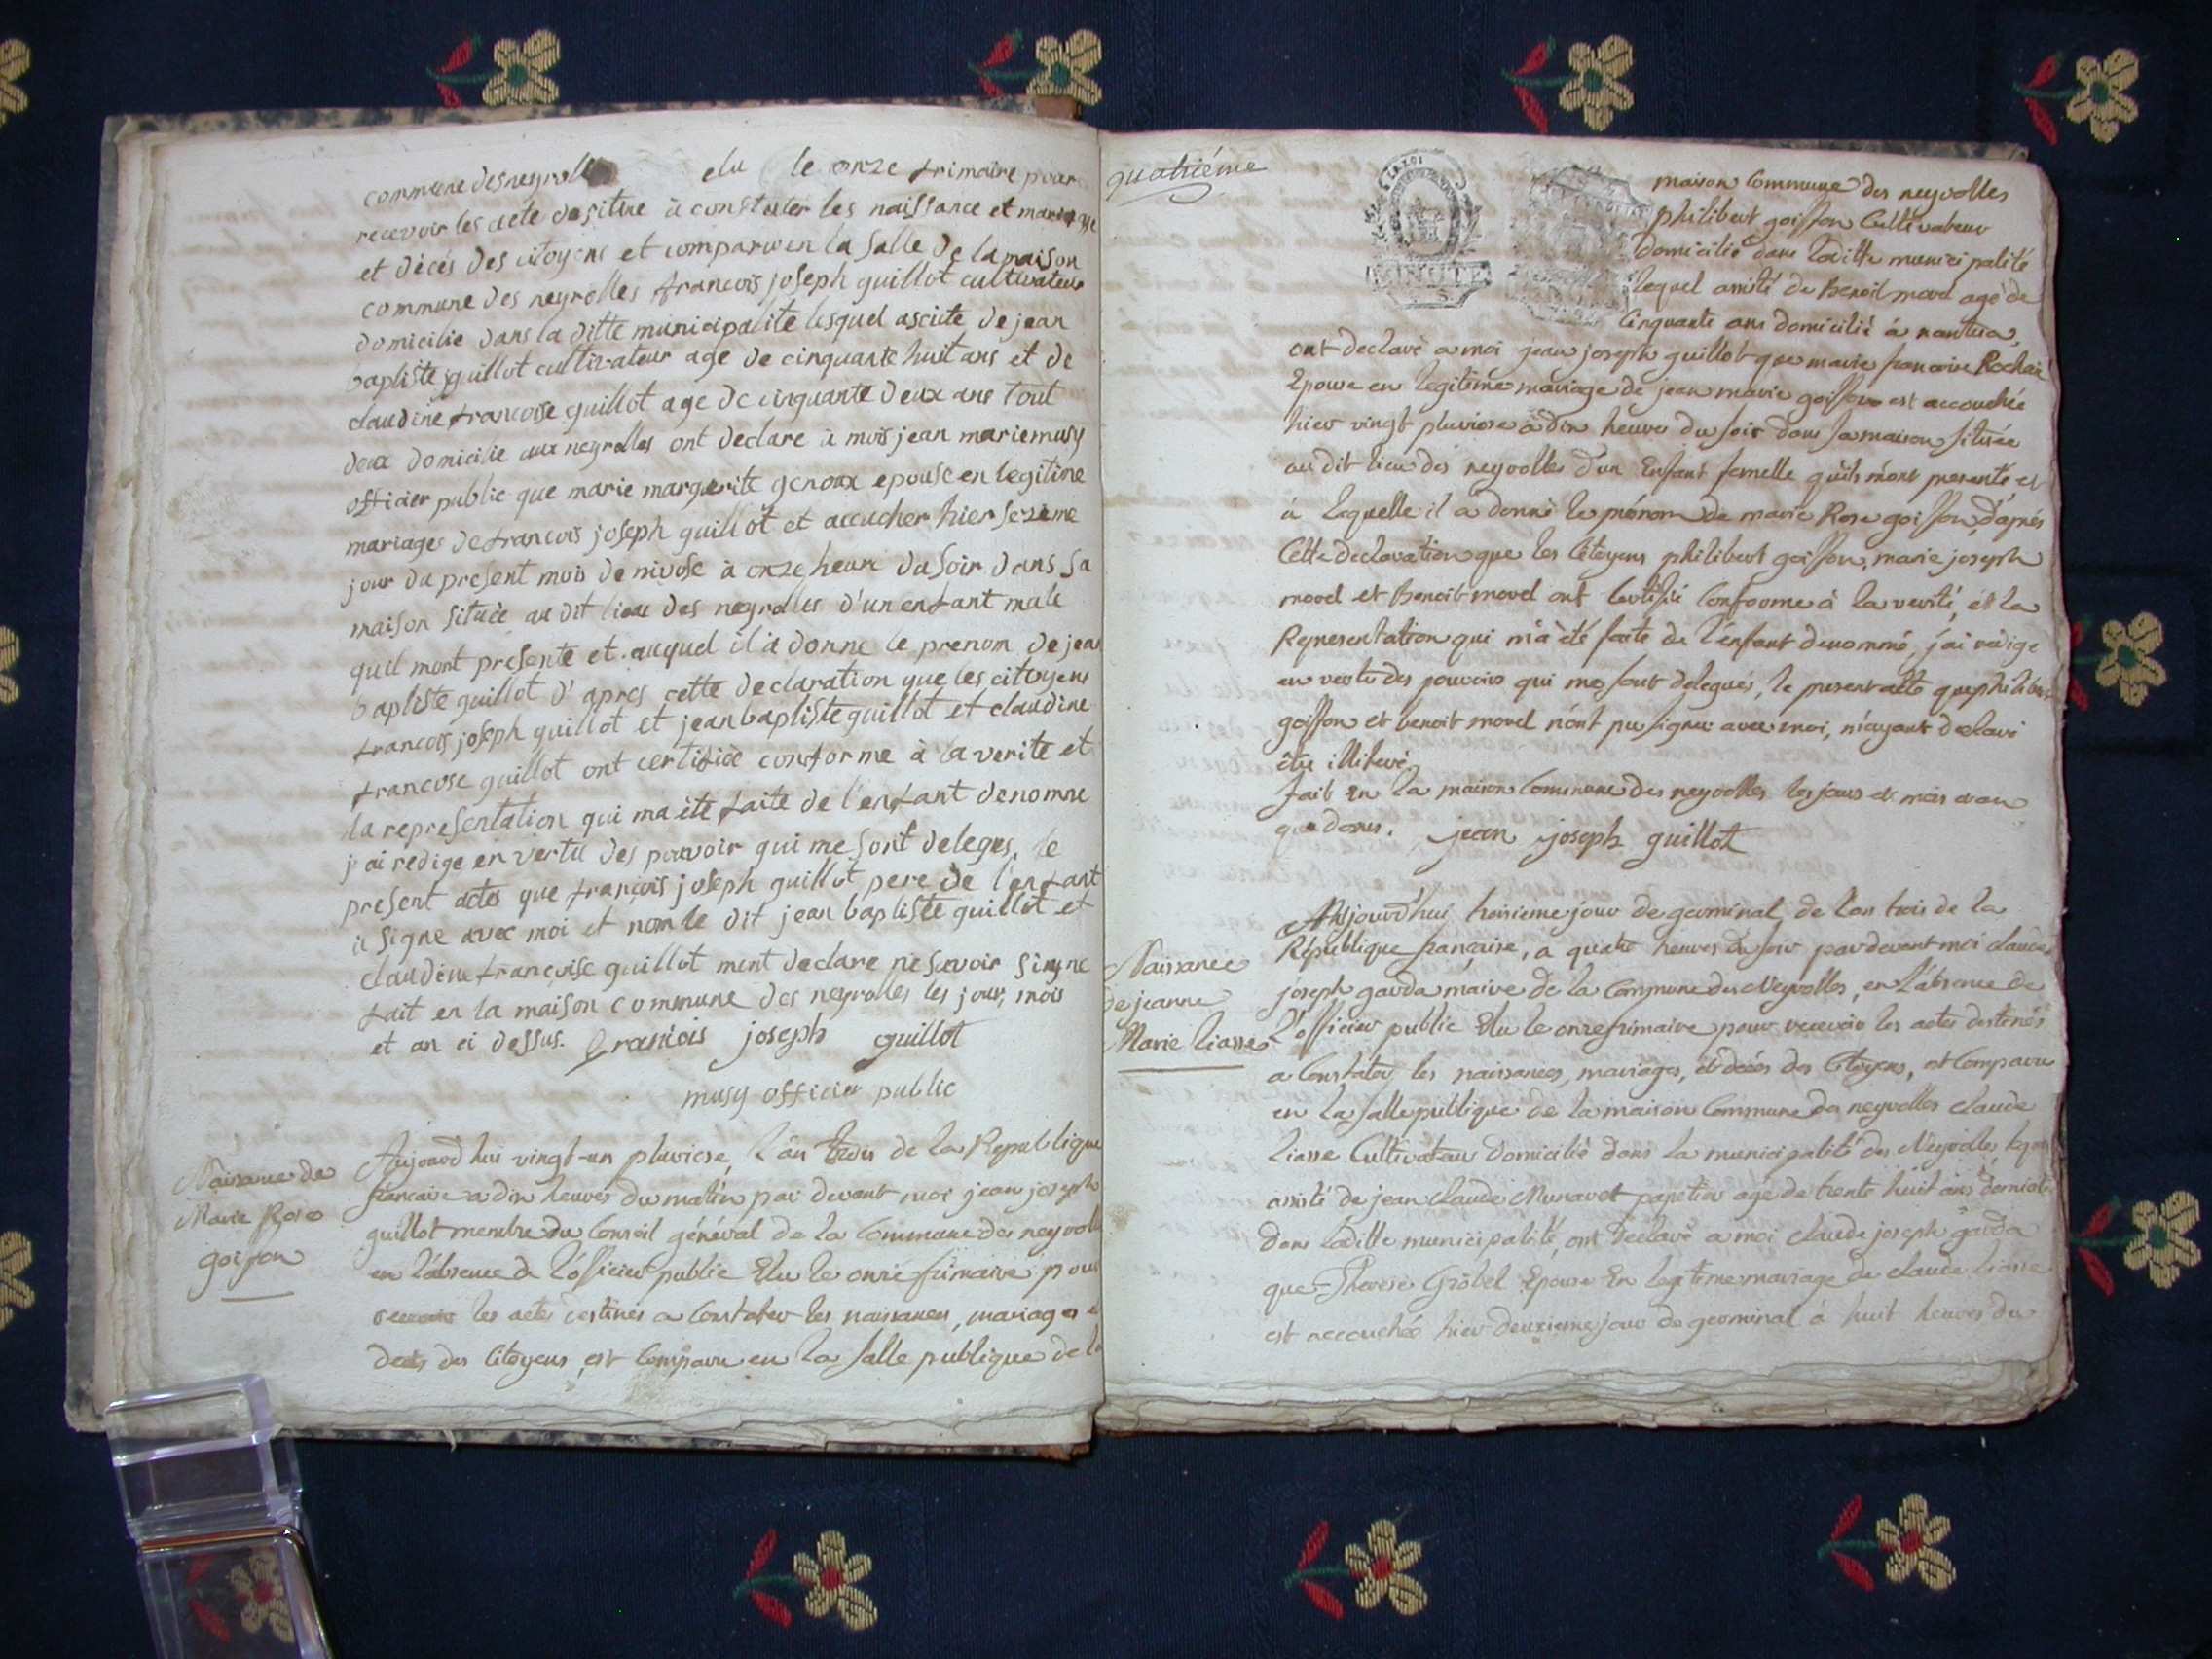 commune des neyrolles elu le onze frimaire pour
recevoir les acte desitine à constater les naissance et mariage
et décés des citoyens et comparu en la salle de la maison
commune des neyrolles francois joseph guillot cultivateur
domicilie dans la ditte municipalite lesquel asciste de jean
baptiste guillot cultivateur age de cinquante huit ans et de
claudine francoise guillot age de cinquante deux ans tout
deux domicilie aux neyrolles ont declare à mois jean marie musy
officier public que marie marguerite genoux epouse en legitime
mariage de francois joseph guillot et accucher hier sezieme
jour du present mois de nivose à onze heure du soir dans sa
maison situèe au dit lieu des neyrolles d'un enfant male
quil mont presente et auquel il a donne le prenom de jean
baptiste guillot d'apres cette declaration que les citoyens
francois joseph guillot et jean baptiste guillot et claudine
francose guillot ont certifièe conforme à la verite et
la representation qui ma ète faite de l'enfant denomne
j'ai redige en vertu des pouvoir qui me sont deleges, le
present actes que françois joseph guillot pere de l'enfant
à signe avec moi et nom le dit jean baptiste guillot et
claudine françoise guillot ment declare ne savoir signe
fait en la maison commune des neyrolles les jour, mois
et an ci dessus. francois joseph guillot
musy officier public
Naissance de
Marie Rose
goifon
Aujourd'hui vingt-un pluviose, l'an trois de la Republique
francaise a dix heures du matin par devant moi jean joseph
guillot membre du Conseil général de la Commune des neyrolles
en l'absence de l'officier public Elu le onze frimaire pour
recevoir les actes destinés a Constater les naissances, mariages et
decès des Citoyens, est Comparu en la salle publique de la
quatriéme
LA LOI
MINUTE
maison Commune des neyrolles
philibert goiffon Cultivateur
domicilié dans laditte municipalité
lequel assisté de Benoit morel agé de
Cinquante ans domicilié à nantua,
ont declaré a moi jean joseph guillot que marie francoise Rochaix
Epouse en legitime mariage de jean marie goiffon est accouchée
hier vingt pluviose à dix heures du soir dans sa maison située
au dit lieu des neyrolles d'un Enfant femelle qu'ils m'ont presenté et
à laquelle il a donné le prénom de marie Rose goiffon, d'après
Cette declaration que les Citoyens philibert goiffon, marie joseph
morel et Benoit morel ont Certifié Conforme à la verité, et la
Representation qui m'a été faite de l'enfant denommé, j'ai redigé
en vertu des pouvoirs qui me sont delegués, le present acte que philibert
goiffon et benoit morel n'ont pu signer avec moi, m'ayant declaré
être illiteré.
fait en la maison Commune des neyrolles les jours et mois et an
que dessus. jean joseph guillot
Naissance
de jeanne
Marie liasse
Aujourd'hui troisieme jour de germinal de l'an trois de la
République française, a quatre heures du soir pardevant moi claude
joseph garda maire de la Commune des Neyrolles, en l'absence de
l'officier public Elu le onze frimaire pour recevoir les actes destinés
a Constater les naissances, mariages, et décés des Citoyens, est Comparu
en la salle publique de la maison Commune des neyrolles claude
liasse Cultivateur domicilié dans la municipalité des Neyrolles lequel
assisté de jean claude Munavet papetier agé de trente huit ans domicilié
dans laditte municipalité, ont declaré a moi claude joseph garda
que Therese Gröbel Epouse En legitime mariage de claude liasse
est accouchée hier deuxieme jour de germinal à huit heures du